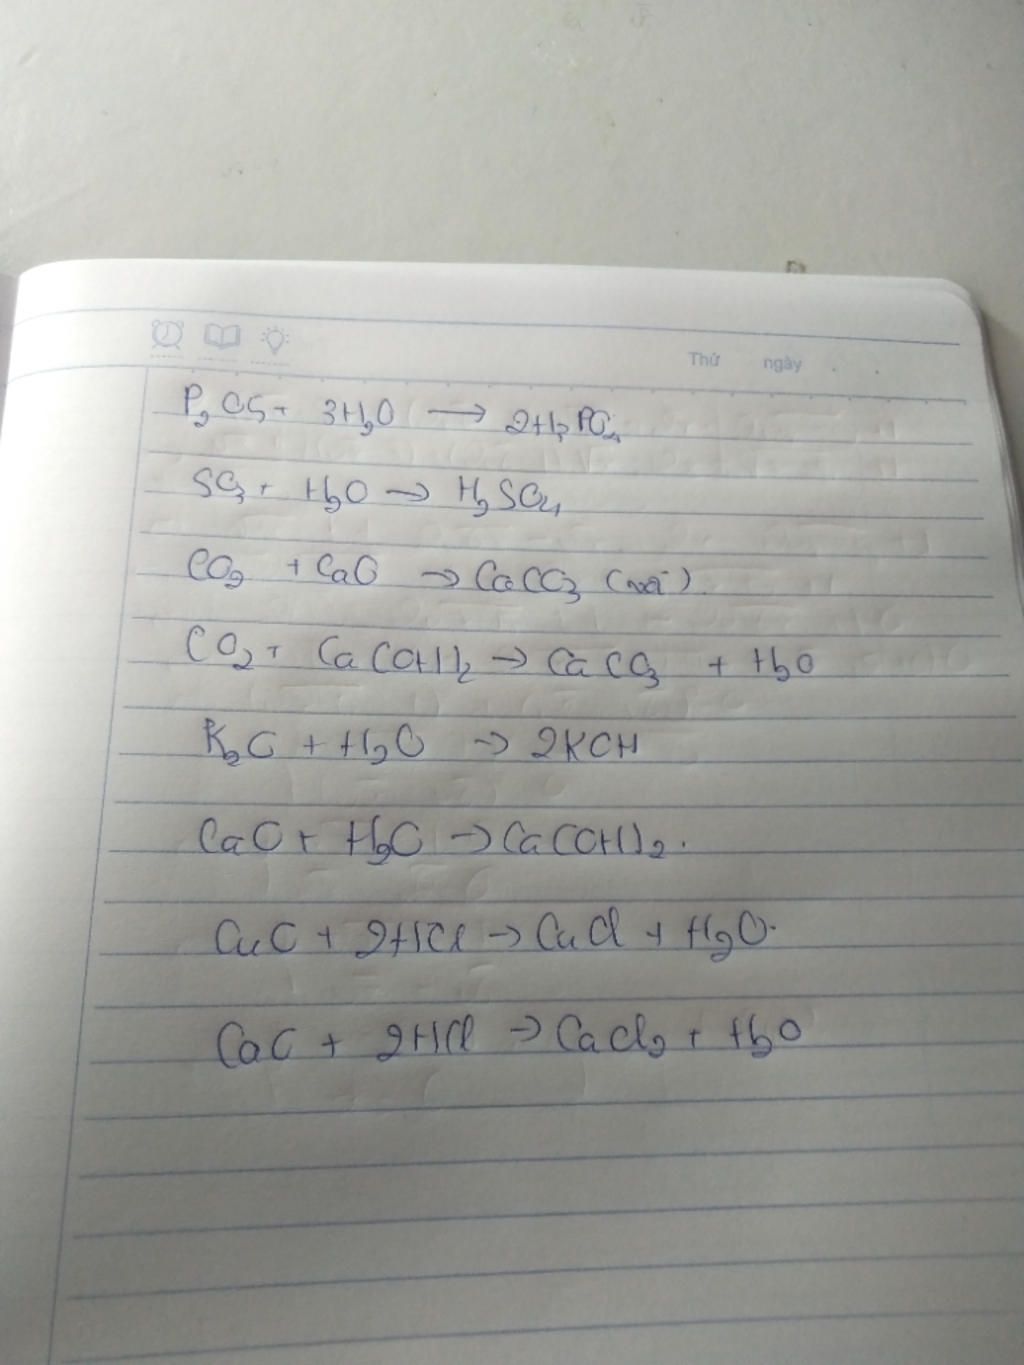 Thứ ngày
P₂O₅ + 3H₂O → 2H₃PO₄
SO₃ + H₂O → H₂SO₄
CO₂ + CaO → CaCO₃
CO₂ + Ca(OH)₂ → CaCO₃ + H₂O
K₂O + H₂O → 2KOH
CaO + H₂O → Ca(OH)₂.
CuO + 2HCl → CuCl + H₂O.
CaO + 2HCl → CaCl₂ + H₂O